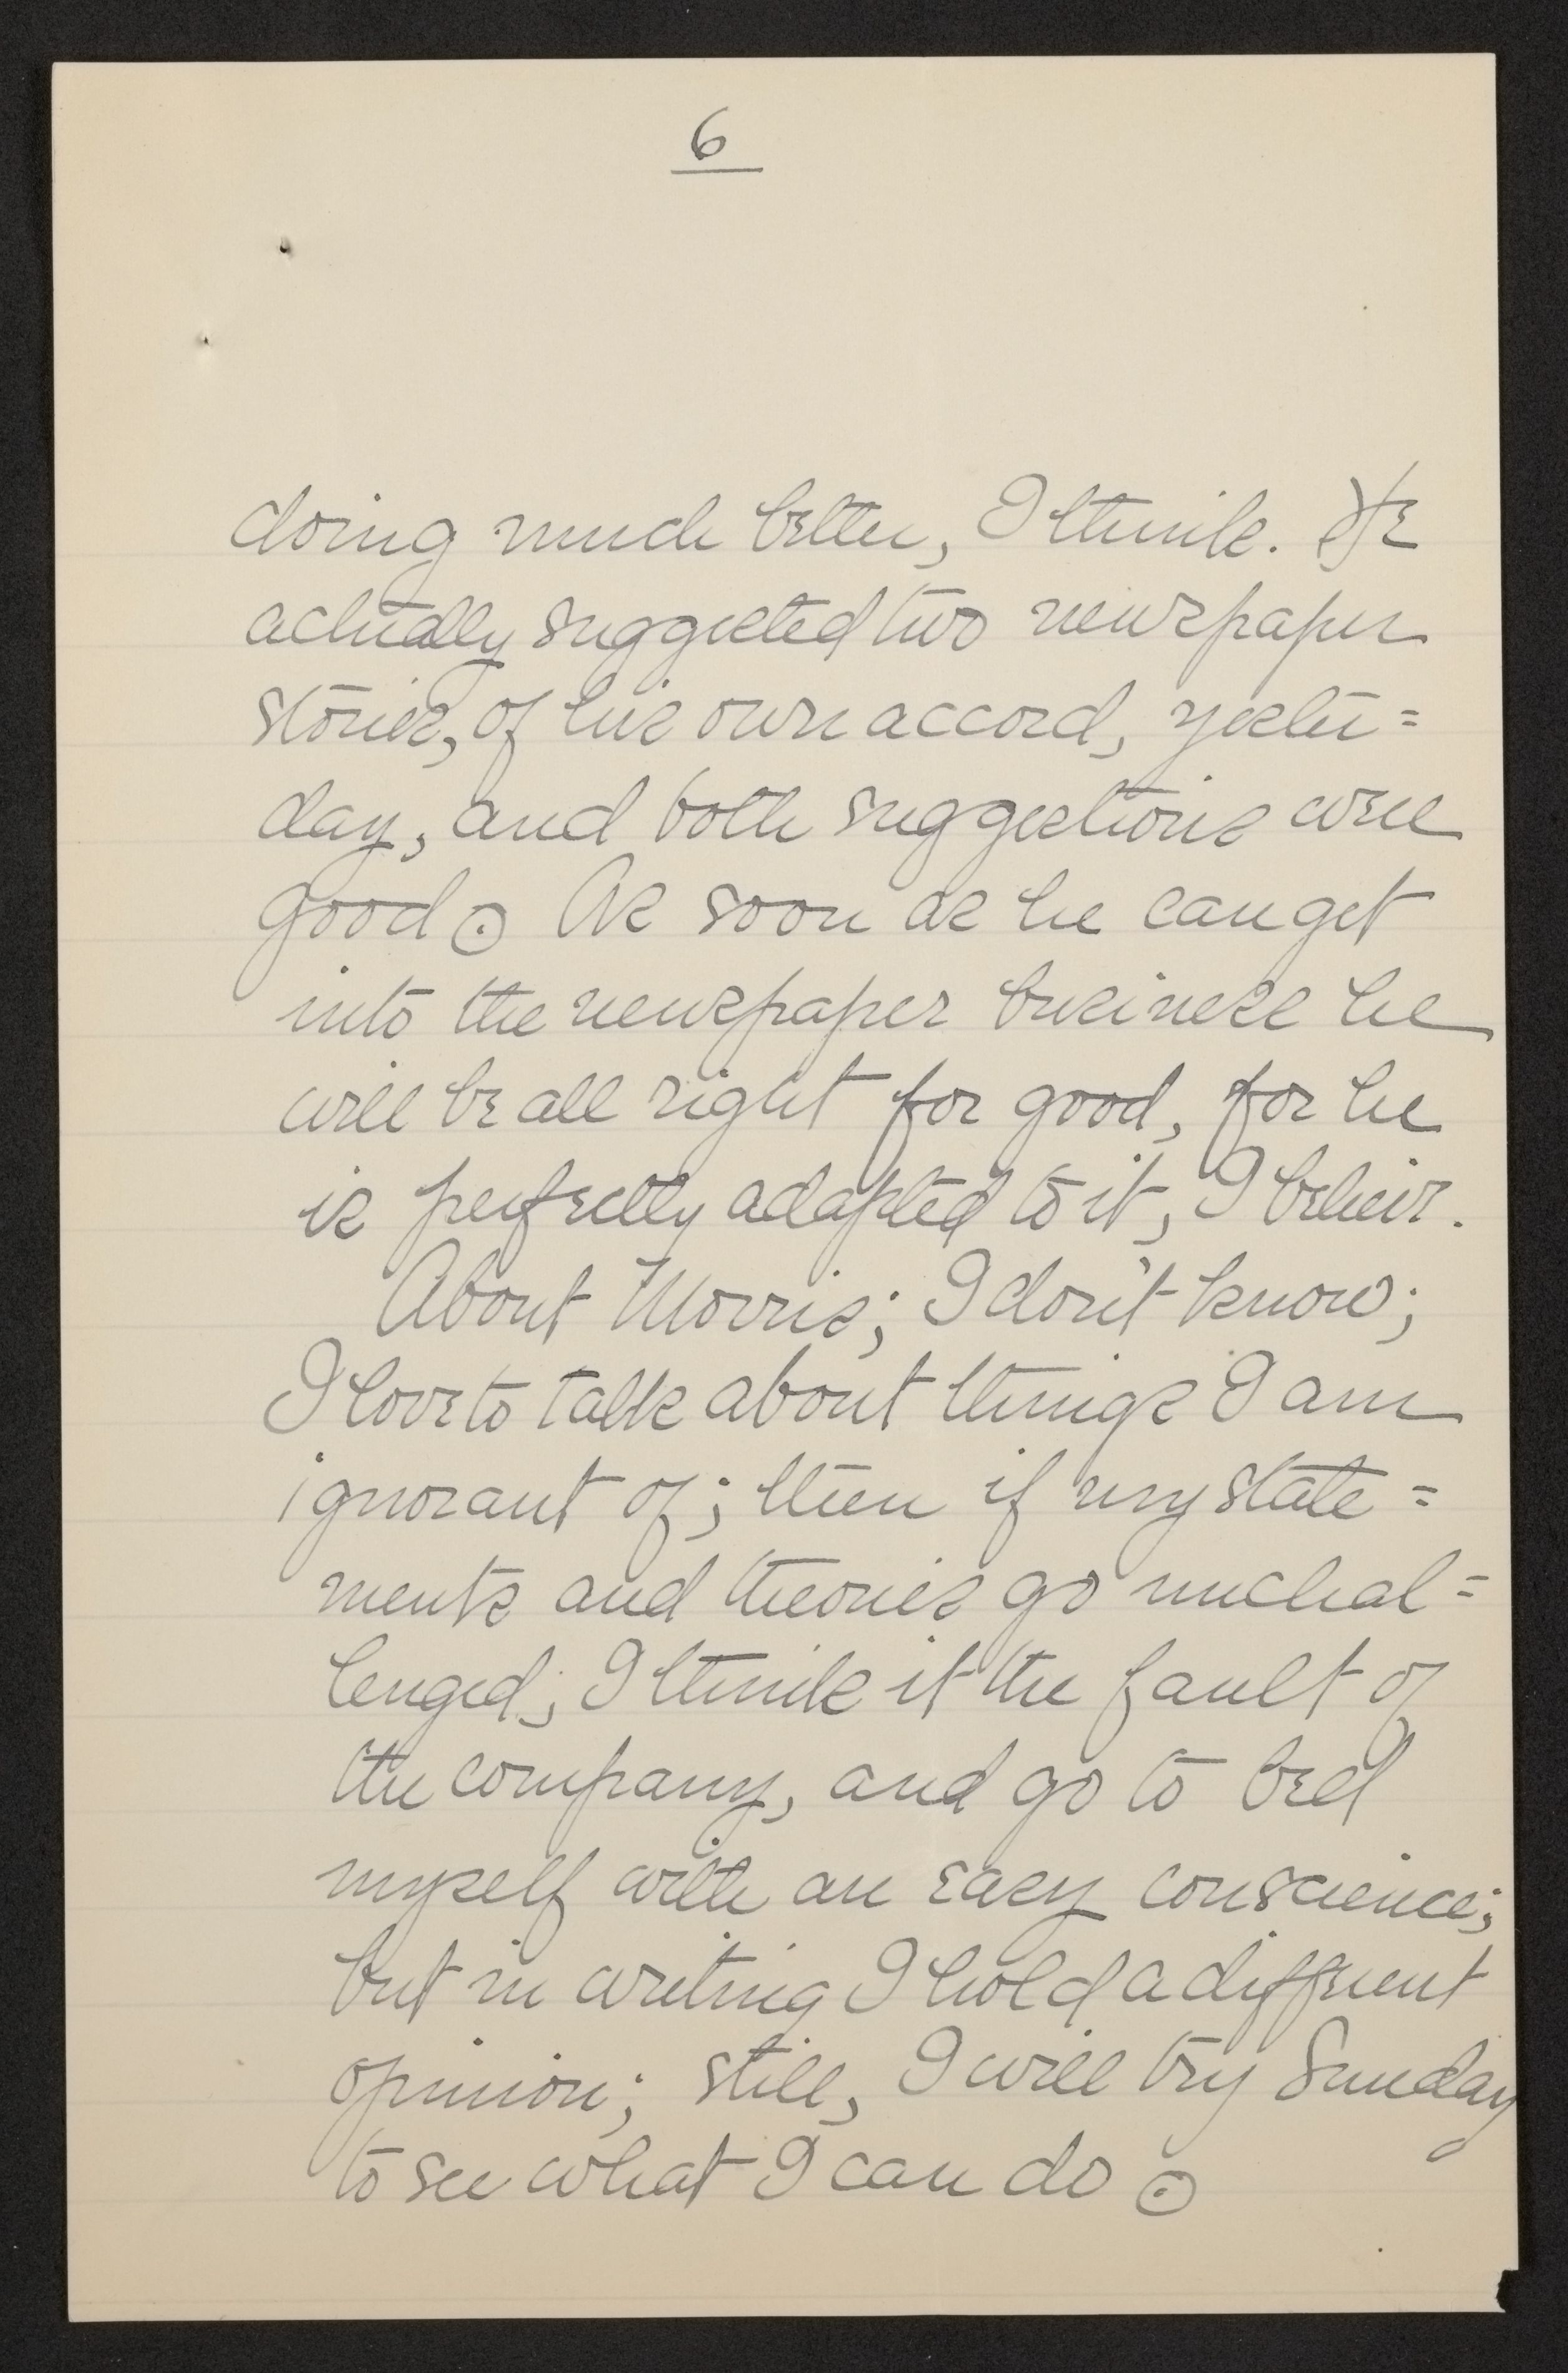 6
doing much better, I think. He
actually suggested two newspaper
stories, of his own accord, yester=
day, and both suggestions were
good. As soon as he can get
into the newspaper business he
will be all right for good, for he
is perfectly adapted to it, I believe.
About Morris; I don't know;
I love to talk about things I am
ignorant of; then if my state=
ments and theories go unchal=
lenged, I think it the fault of
the company, and go to bed
myself with an easy conscience;
but in writing I hold a different
opinion; still, I will try Sunday
to see what I can do.